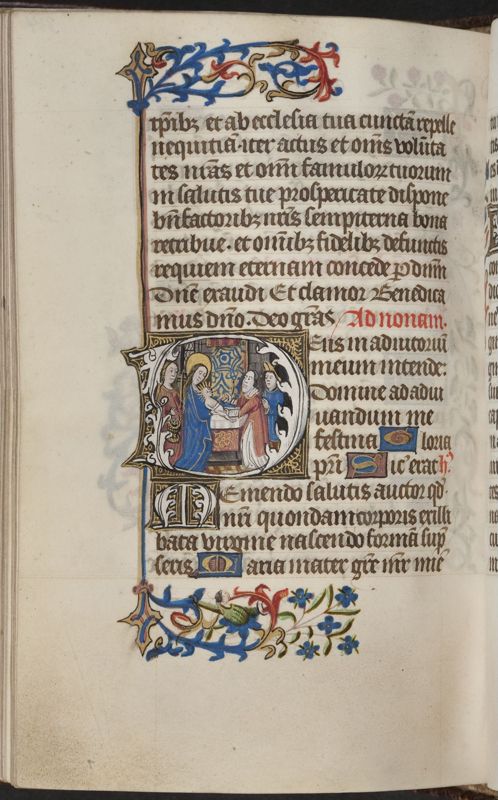 tp̄ibꝫ et ab ecclesia tua cunctā repelle
nequitiā iter actus et om̄s volūta
tes nr̄as et om̄i famuloꝝ tuorum
in salutis tue prosperitate dispone
bn̄factoribꝫ nr̄is sempiterna bona
retribue. et om̄ibꝫ fidelibꝫ defunctis
requiem eternam concede ꝑ dn̄m
Dn̄e exaudi Et clamor Benedica
mus dn̄o. Deo gr̄as Ad nonam.
Deus in adiutoriū
meum intende:
Domine ad adiu
uandum me
festina Gloria
pr̄i Sic erat h̄ꝰ.
Memento salutis auctor qd̄
nr̄i quondam corporis ex illi
bata virgine nascendo formā sūp
seris Maria mater gr̄e mr̄ mīe